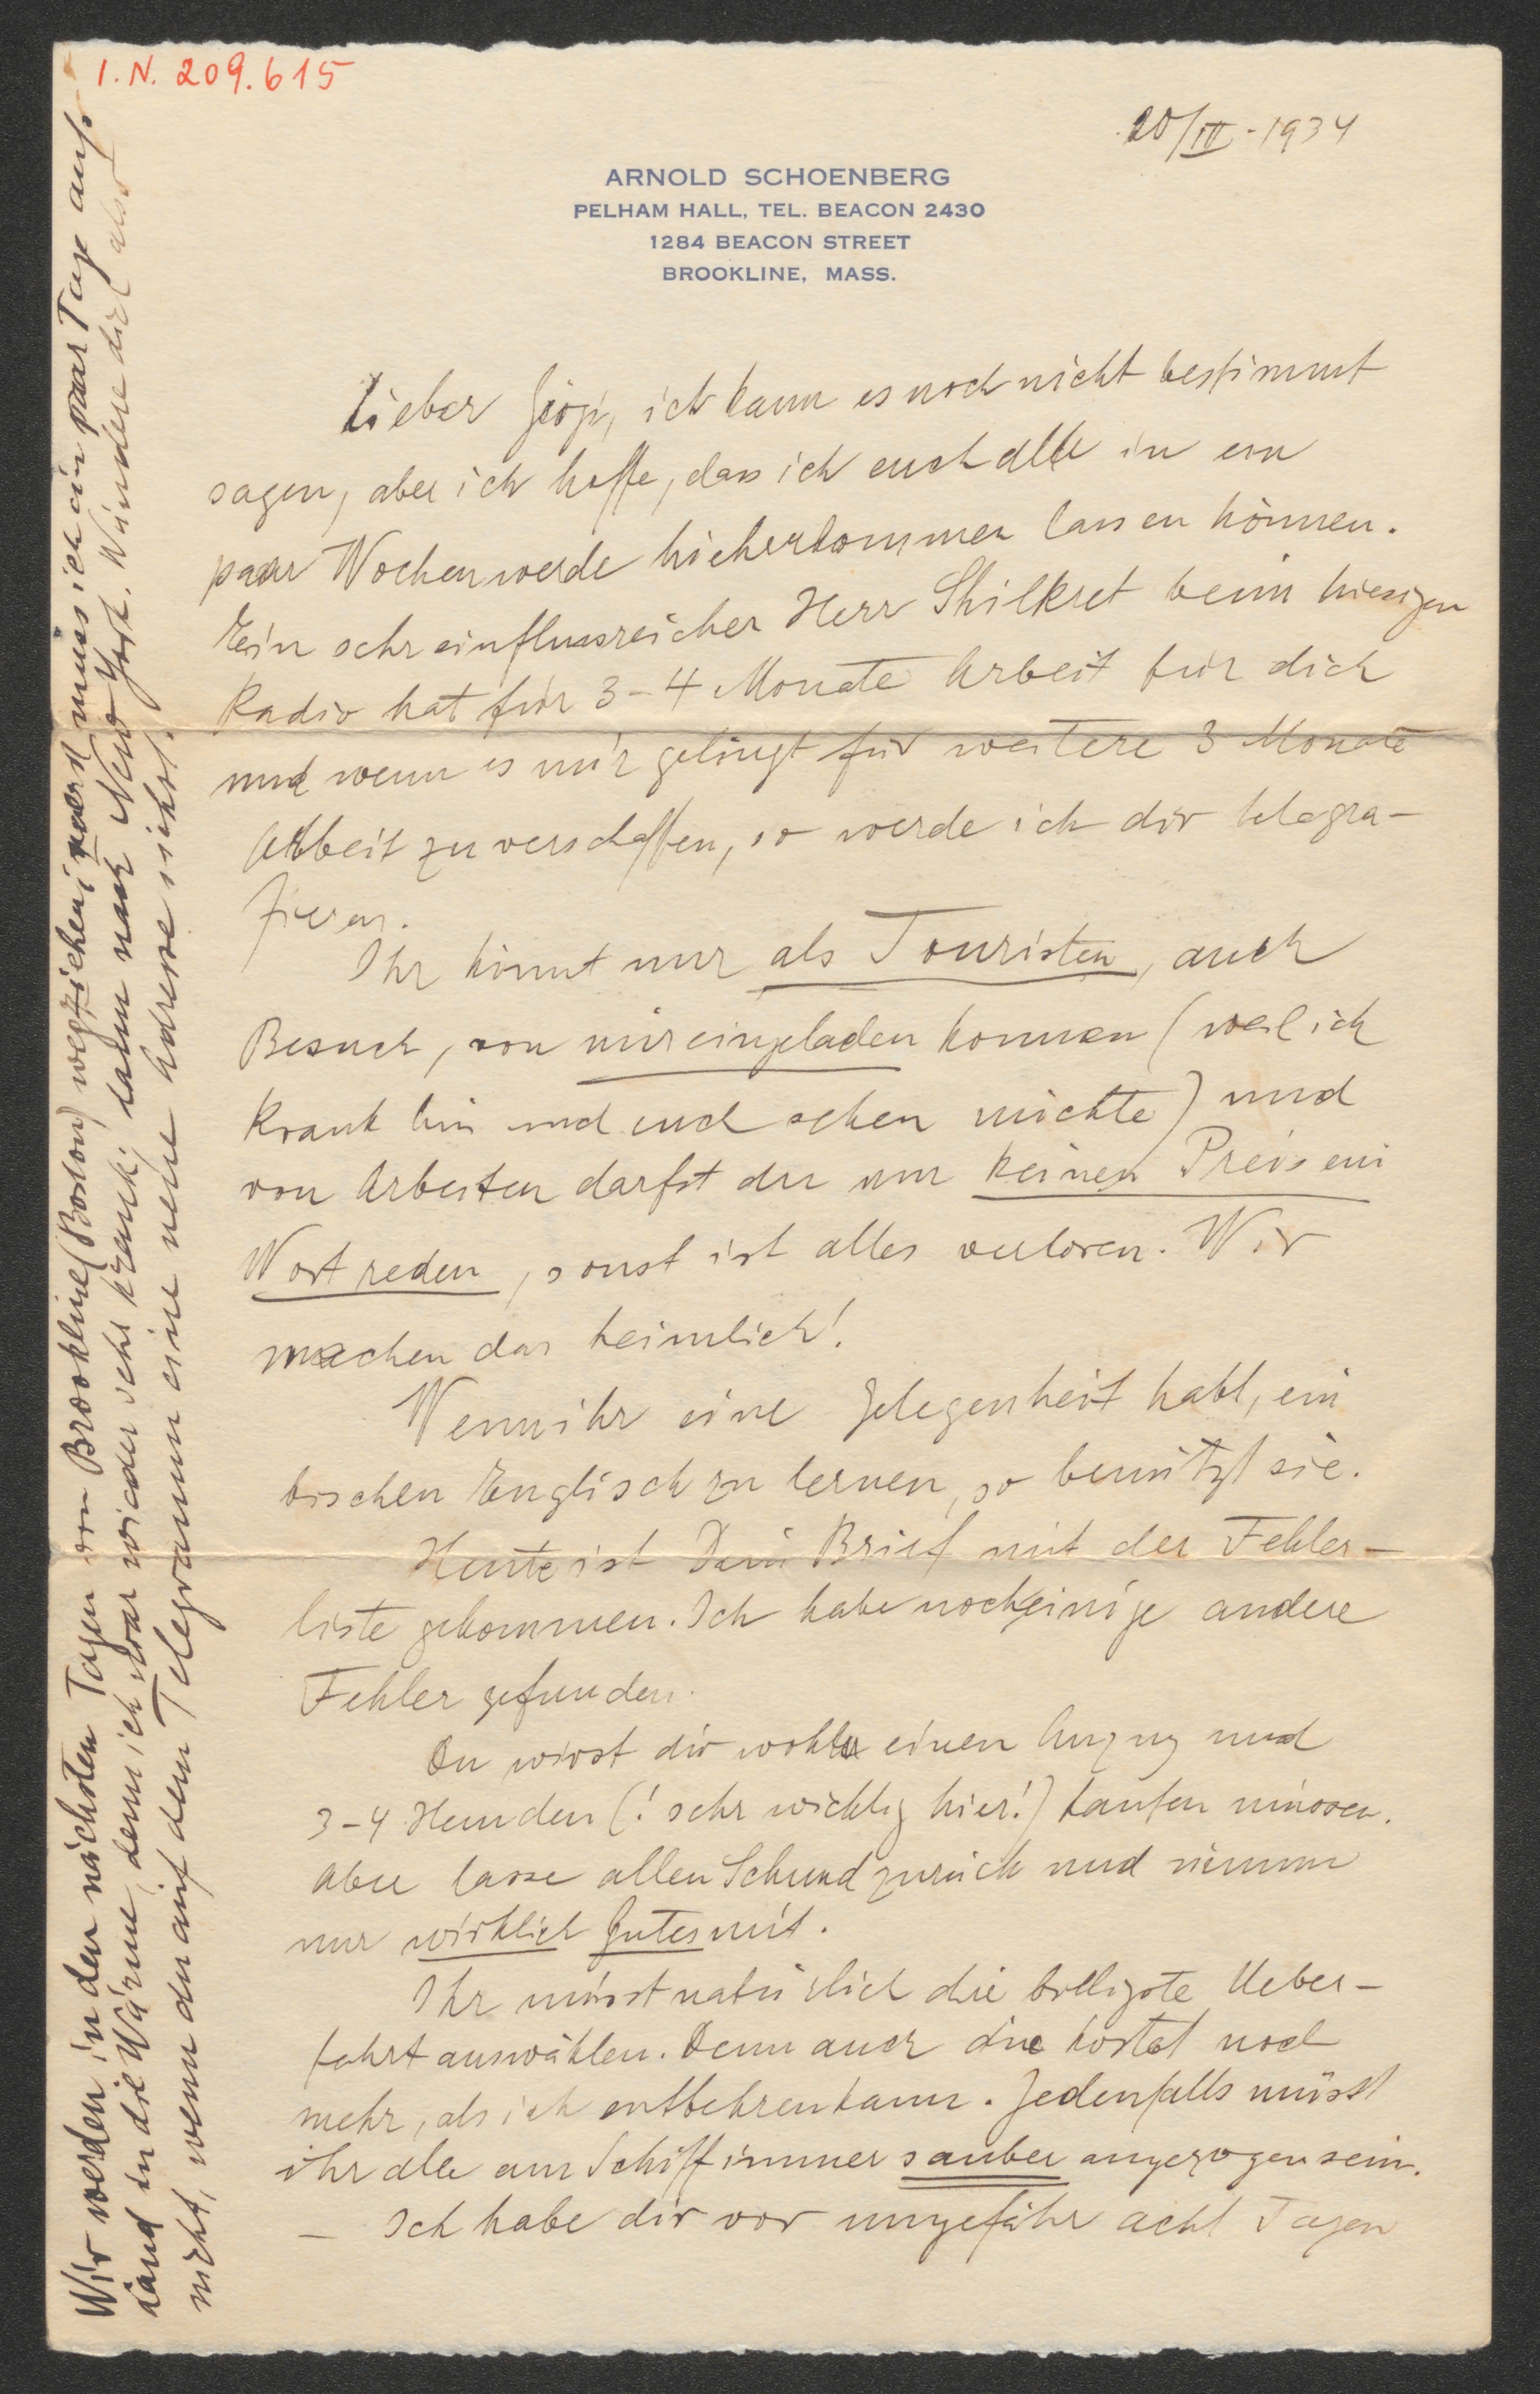 I.N. 209.615
20/III - 1934
ARNOLD SCHOENBERG
PELHAM HALL, TEL. BEACON 2430
1284 BEACON STREET
BROOKLINE, MASS.
Lieber Görgi, ich kann es noch nicht bestimmt
sagen, aber ich hoffe, dass ich euch alle in ein
paar Wochen werde hieherkommen lassen können.
Ein sehr einflussreicher Herr Shilkret beim hiesigen
Radio hat für 3-4 Monate Arbeit für dich
und wenn es mir gelingt für weitere 3 Monate
Arbeit zu verschaffen, so werde ich dir telegra-
fieren.
Ihr könnt nur als Touristen, auch
Besuch, von mir eingeladen kommen (weil ich
krank bin und euch sehen möchte) und
von Arbeiten darfst du um keinen Preis ein
Wort reden, sonst ist alles verloren. Wir
machen das heimlich!
Wenn ihr eine Gelegenheit habt, ein
bischen Englisch zu lernen, so benützt sie.
Heute ist Dein Brief mit der Fehler-
liste gekommen. Ich habe noch einige andere
Fehler gefunden.
Du wirst dir wohl einen Anzug und
3-4 Hemden (! sehr wichtig hier!) kaufen müssen.
Aber lasse allen Schund zurück und nimm
nur wirklich Gutes mit.
Ihr müsst natürlich die billigste Ueber-
fahrt auswählen. Denn auch die kostet noch
mehr, als ich entbehren kann. Jedenfalls müsst
ihr alle am Schiff immer sauber angezogen sein.
— Ich habe dir vor ungefähr acht Tagen
Wir werden in den nächsten Tagen von Brookline (Boston) wegziehen; zuerst muss ich ein paar Tage aufs
Land in die Wärme, denn ich war wieder sehr krank; dann nach New York. Wundere dich also
nicht, wenn du auf dem Telegramm eine neue Adresse siehst.